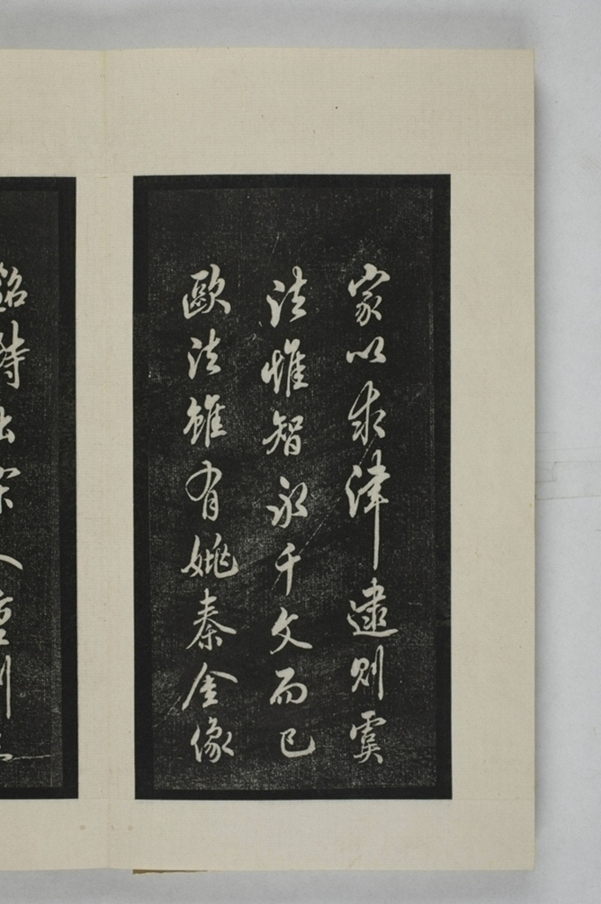 家以求津逮則虞
法惟智永千文而已
歐法雖有姚秦金像